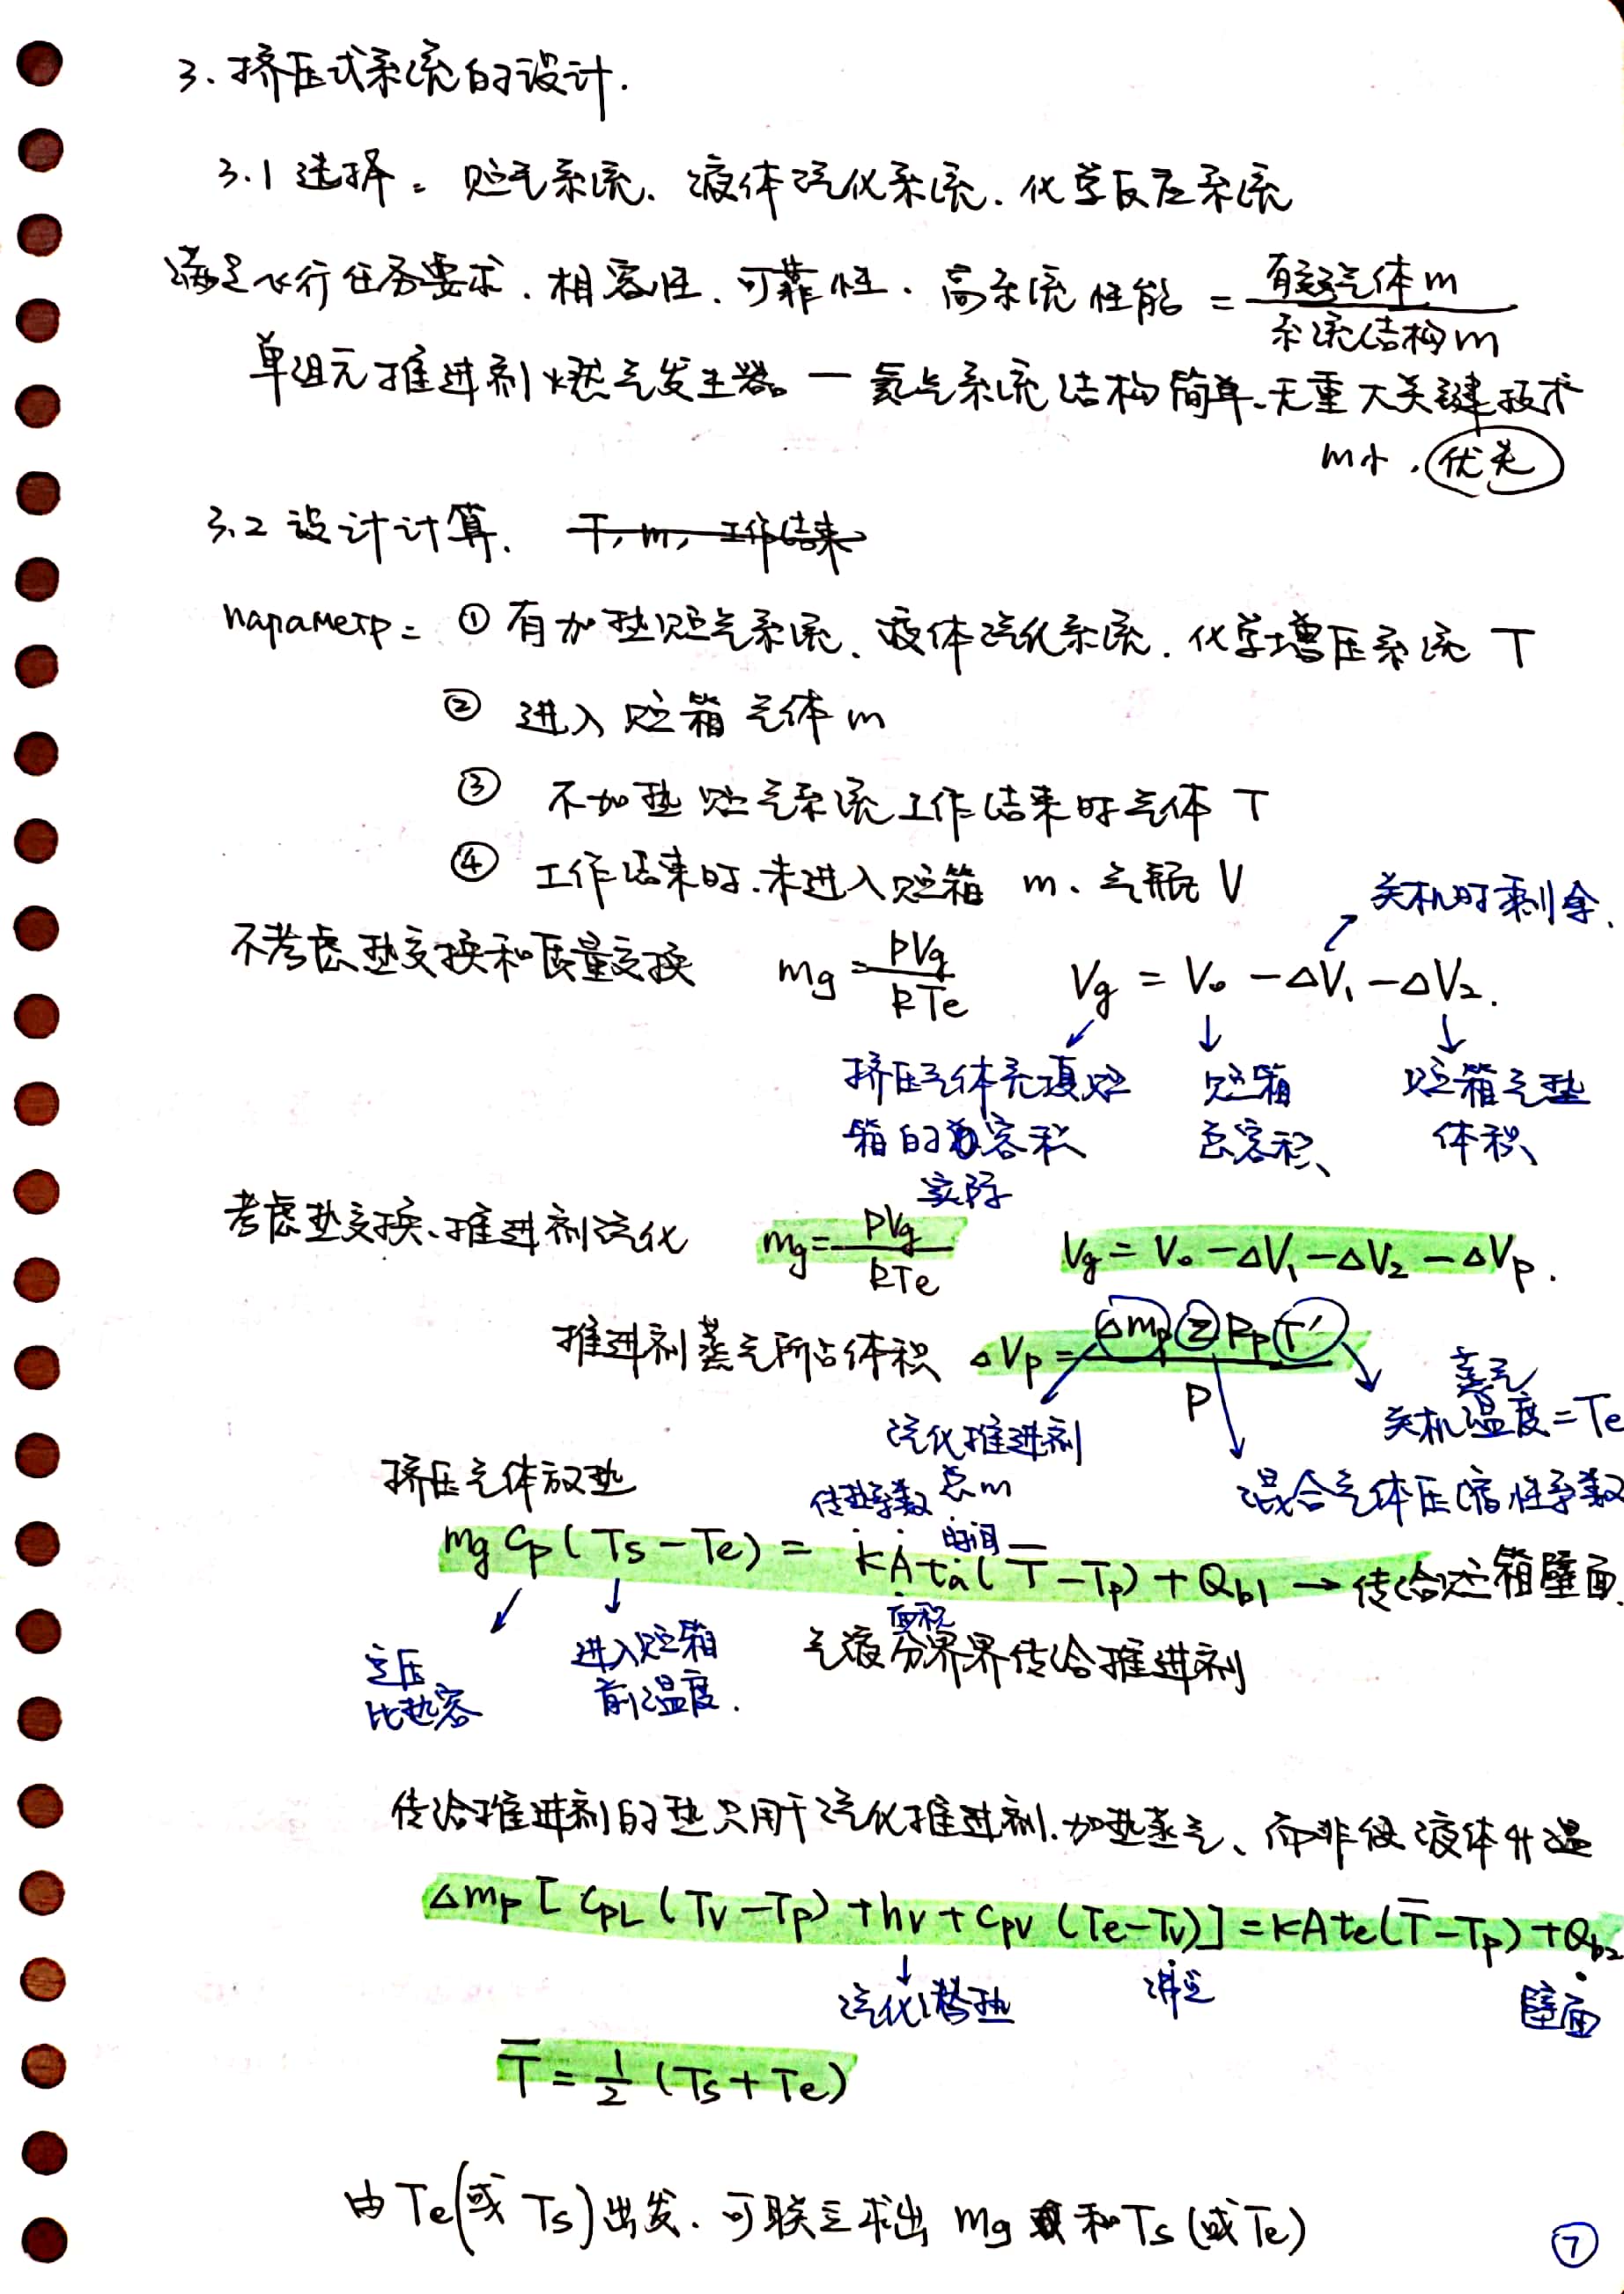 3. 挤压式系统的设计.
3.1 选择: 贮气系统. 液体汽化系统. 化学反应系统
满足飞行任务要求. 相容性. 可靠性. 高系统性能 = 有效气体m / 系统结构m
单组元推进剂燃气发生器 — 氦气系统结构简单. 无重大关键技术
m小. 优先
3.2 设计计算. T, m, 工作结束
параметр: ① 有加热贮气系统. 液体汽化系统. 化学增压系统 T
② 进入贮箱气体 m
③ 不加热贮气系统工作结束时气体 T
④ 工作结束时. 未进入贮箱 m. 气瓶 V
关机时剩余.
不考虑热交换和质量交换 mg = pVg / RTe Vg = V₀ - ΔV₁ - ΔV₂.
挤压气体充填贮 贮箱 贮箱气垫
箱的容积 总容积 体积
实际
考虑热交换、推进剂汽化 mg = pVg / RTe Vg = V₀ - ΔV₁ - ΔV₂ - ΔVp.
推进剂蒸气所占体积 ΔVp = Δmp Z Rp T' / P
蒸气
关机温度 = Te
汽化推进剂
总m
混合气体压缩性系数
挤压气体放热
传热系数 时间
mg Cp (Ts - Te) = kA ta (T̄ - Tp) + Qb1 → 传给贮箱壁面.
面积
定压
比热容
进入贮箱
前温度.
气液分界界传给推进剂
传给推进剂的热只用于汽化推进剂. 加热蒸气、而非使液体升温
Δmp [ CpL (Tv - Tp) + hv + Cpv (Te - Tv)] = kA te (T̄ - Tp) + Qb2
汽化潜热 沸点 壁面
T̄ = 1/2 (Ts + Te)
由 Te (或 Ts) 出发. 可联立求出 mg 和 Ts (或 Te)
⑦